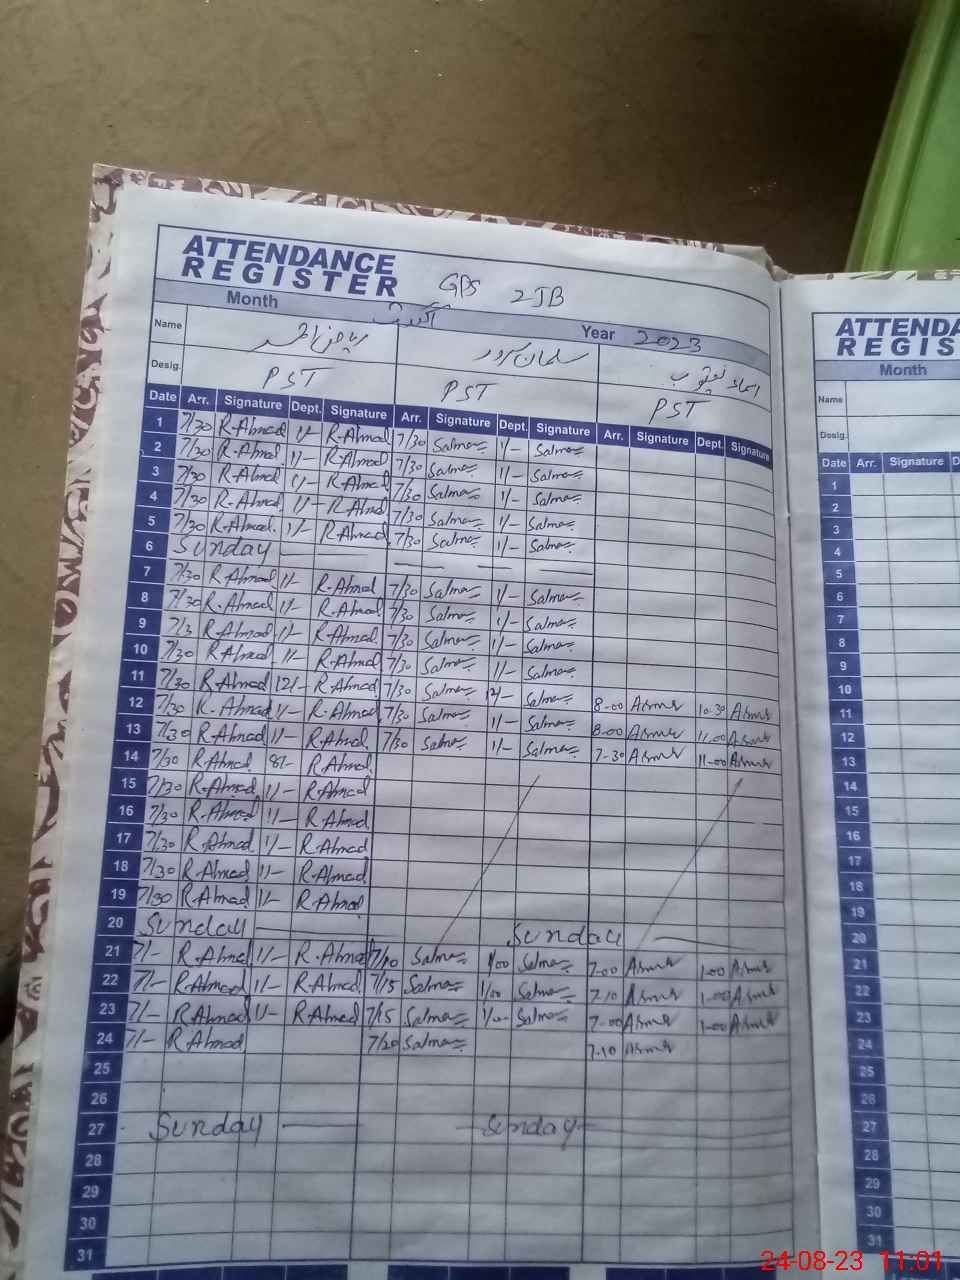 ATTENDANCE
REGISTER
GPS 2JB
Month اگست Year 2023
Name ریاض احمد سلمان سرور اسماء یعقوب
Desig. PST PST PST
Date Arr. Signature Dept. Signature Arr. Signature Dept. Signature Arr. Signature Dept. Signature
1 7/30 R.Ahmad 1/- R.Ahmad 7/30 Salma 1/- Salma
2 7/30 R.Ahmad 1/- R.Ahmad 7/30 Salma 1/- Salma
3 7/30 R.Ahmad 1/- R.Ahmad 7/30 Salma 1/- Salma
4 7/30 R.Ahmad 1/- R.Ahmad 7/30 Salma 1/- Salma
5 7/30 R.Ahmad 1/- R.Ahmad 7/30 Salma 1/- Salma
6 Sunday
7 7/30 R.Ahmad 1/- R.Ahmad 7/30 Salma 1/- Salma
8 7/30 R.Ahmad 1/- R.Ahmad 7/30 Salma 1/- Salma
9 7/3 R.Ahmad 1/- R.Ahmad 7/30 Salma 1/- Salma
10 7/30 R.Ahmad 1/- R.Ahmad 7/30 Salma 1/- Salma
11 7/30 R.Ahmad 12/- R.Ahmad 7/30 Salma 12/- Salma 8-00 Asma 10-30 Asma
12 7/30 R.Ahmad 1/- R.Ahmad 7/30 Salma 1/- Salma 8-00 Asma 11-00 Asma
13 7/30 R.Ahmad 1/- R.Ahmad 7/30 Salma 1/- Salma 7-30 Asma 11-00 Asma
14 7/30 R.Ahmad 8/- R.Ahmad
15 7/30 R.Ahmad 1/- R.Ahmad
16 7/30 R.Ahmad 1/- R.Ahmad
17 7/30 R.Ahmad 1/- R.Ahmad
18 7/30 R.Ahmad 1/- R.Ahmad
19 7/30 R.Ahmad 1/- R.Ahmad
20 Sunday Sunday
21 7/- R.Ahmad 1/- R.Ahmad 7/10 Salma 1/00 Salma 7-00 Asma 1-00 Asma
22 7/- R.Ahmad 1/- R.Ahmad 7/15 Salma 1/00 Salma 7-10 Asma 1-00 Asma
23 7/- R.Ahmad 1/- R.Ahmad 7/15 Salma 1/00 Salma 7-00 Asma 1-00 Asma
24 7/- R Ahmad 7/20 Salma 7-10 Asma
25
26
27 Sunday Sunday
28
29
30
31
ATTENDA
REGIS
Month
Name
Desig.
Date Arr. Signature D
1
2
3
4
5
6
7
8
9
10
11
12
13
14
15
16
17
18
19
20
21
22
23
24
25
26
27
28
29
30
31
24-08-23 11:01